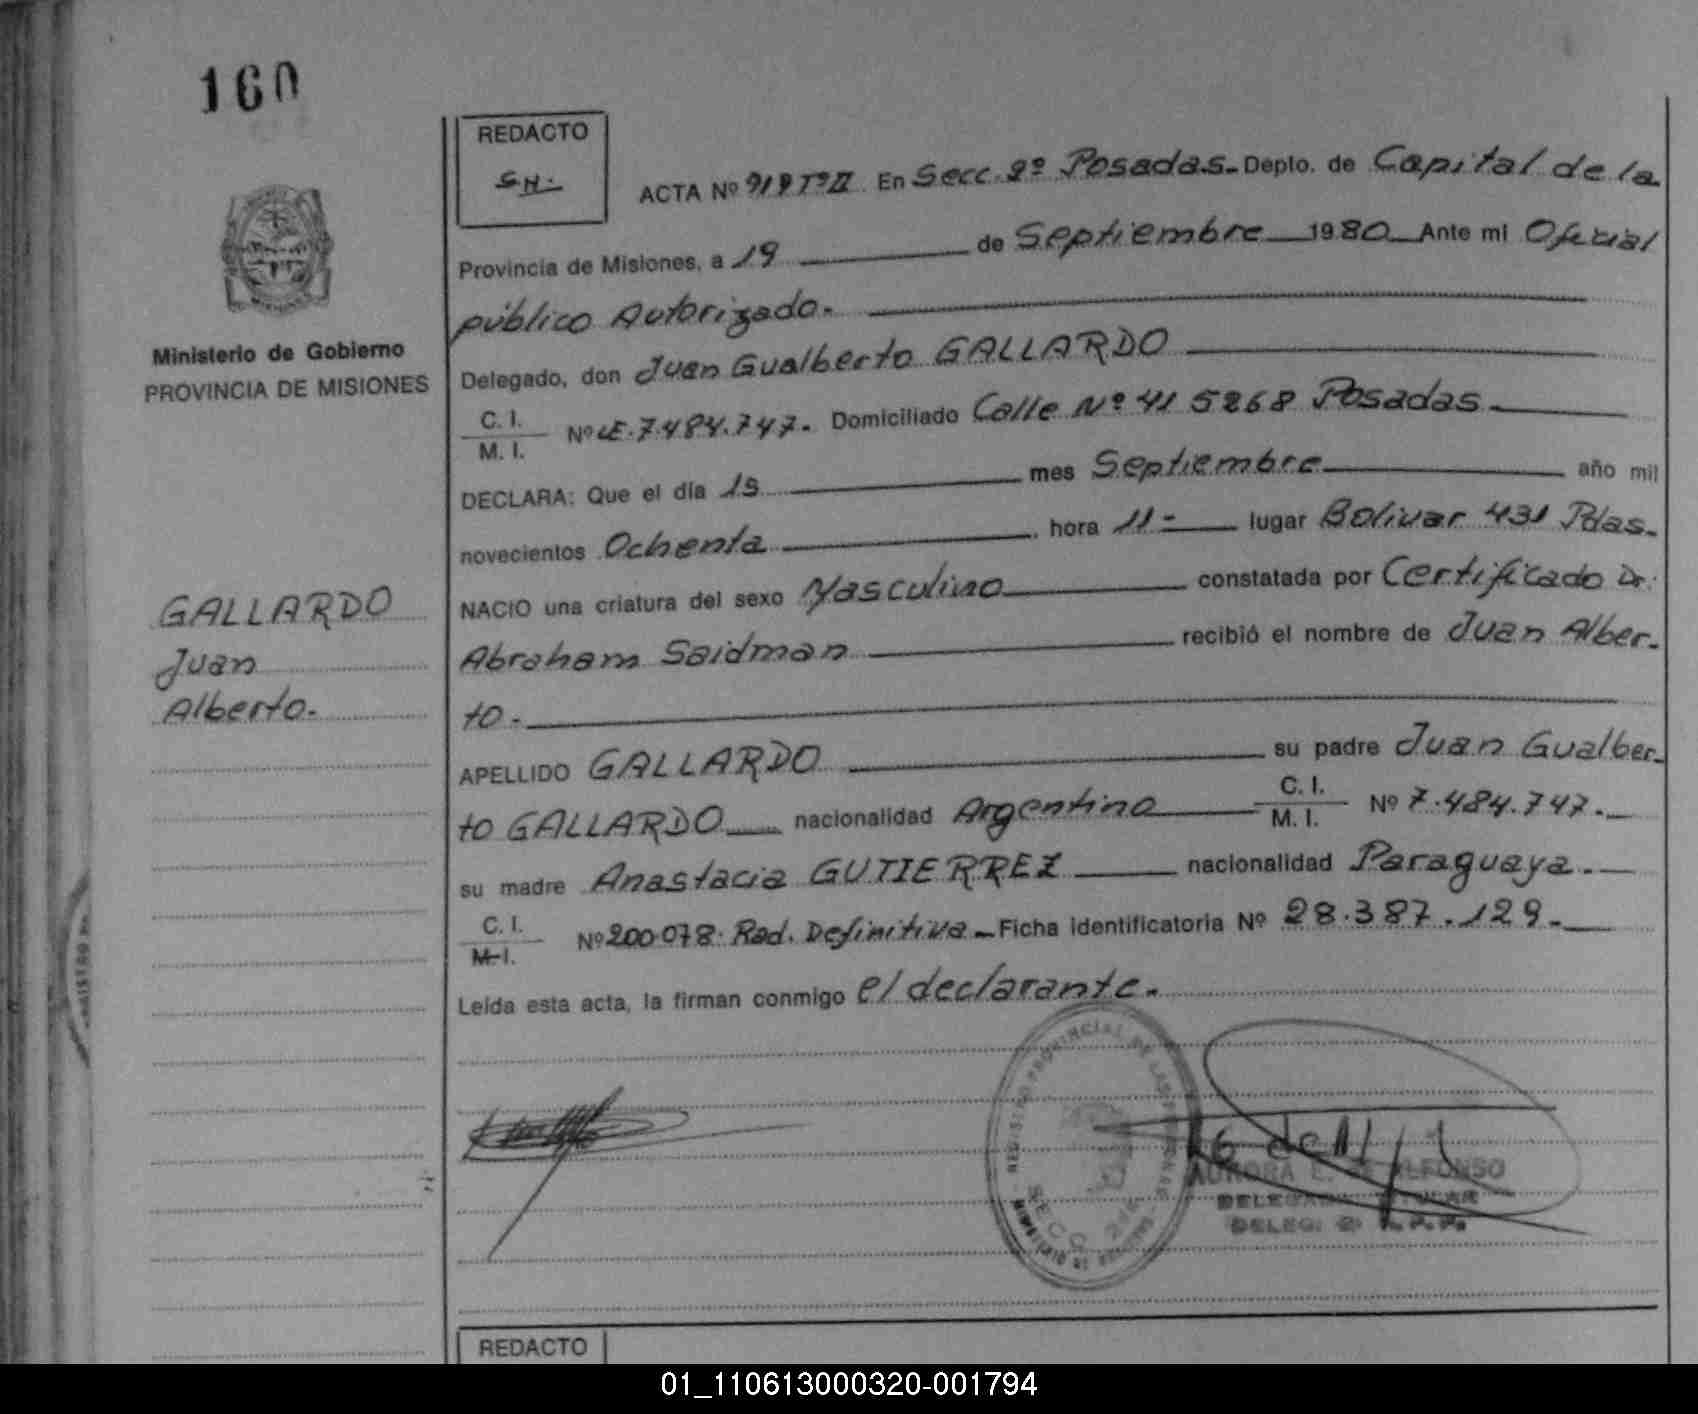 160
REDACTO
S.H.
ACTA Nº 919 TºII En Secc. 2º Posadas.- Depto. de Capital de la
Provincia de Misiones, a 19 de Septiembre 1980 Ante mi Oficial
público Autorizado.
Ministerio de Gobierno
PROVINCIA DE MISIONES
Delegado, don Juan Gualberto GALLARDO
C. I.
M. I.
Nº LE.7.484.747. Domiciliado Calle Nº 41 5268 Posadas
DECLARA: Que el día 15 mes Septiembre año mil
novecientos Ochenta , hora 11 - lugar Bolivar 431 Pdas.
NACIO una criatura del sexo Masculino constatada por Certificado Dr.:
Abraham Saidman recibió el nombre de Juan Alber-
to.
GALLARDO
Juan
Alberto.
APELLIDO GALLARDO su padre Juan Gualber-
to GALLARDO nacionalidad Argentino C. I. M. I. Nº 7.484.747.
su madre Anastacia GUTIERREZ nacionalidad Paraguaya.
C. I.
M. I.
Nº 200.078. Rad. Definitiva - Ficha identificatoria Nº 28.387.129.
Leída esta acta, la firman conmigo el declarante.
REGISTRO PROVINCIAL DE LAS PERSONAS
SECC. 2da
MINISTERIO DE GOBIERNO
AURORA E. ALFONSO
DELEGADA TITULAR
DELEG. 2ª R.P.P.
REDACTO
01_110613000320-001794